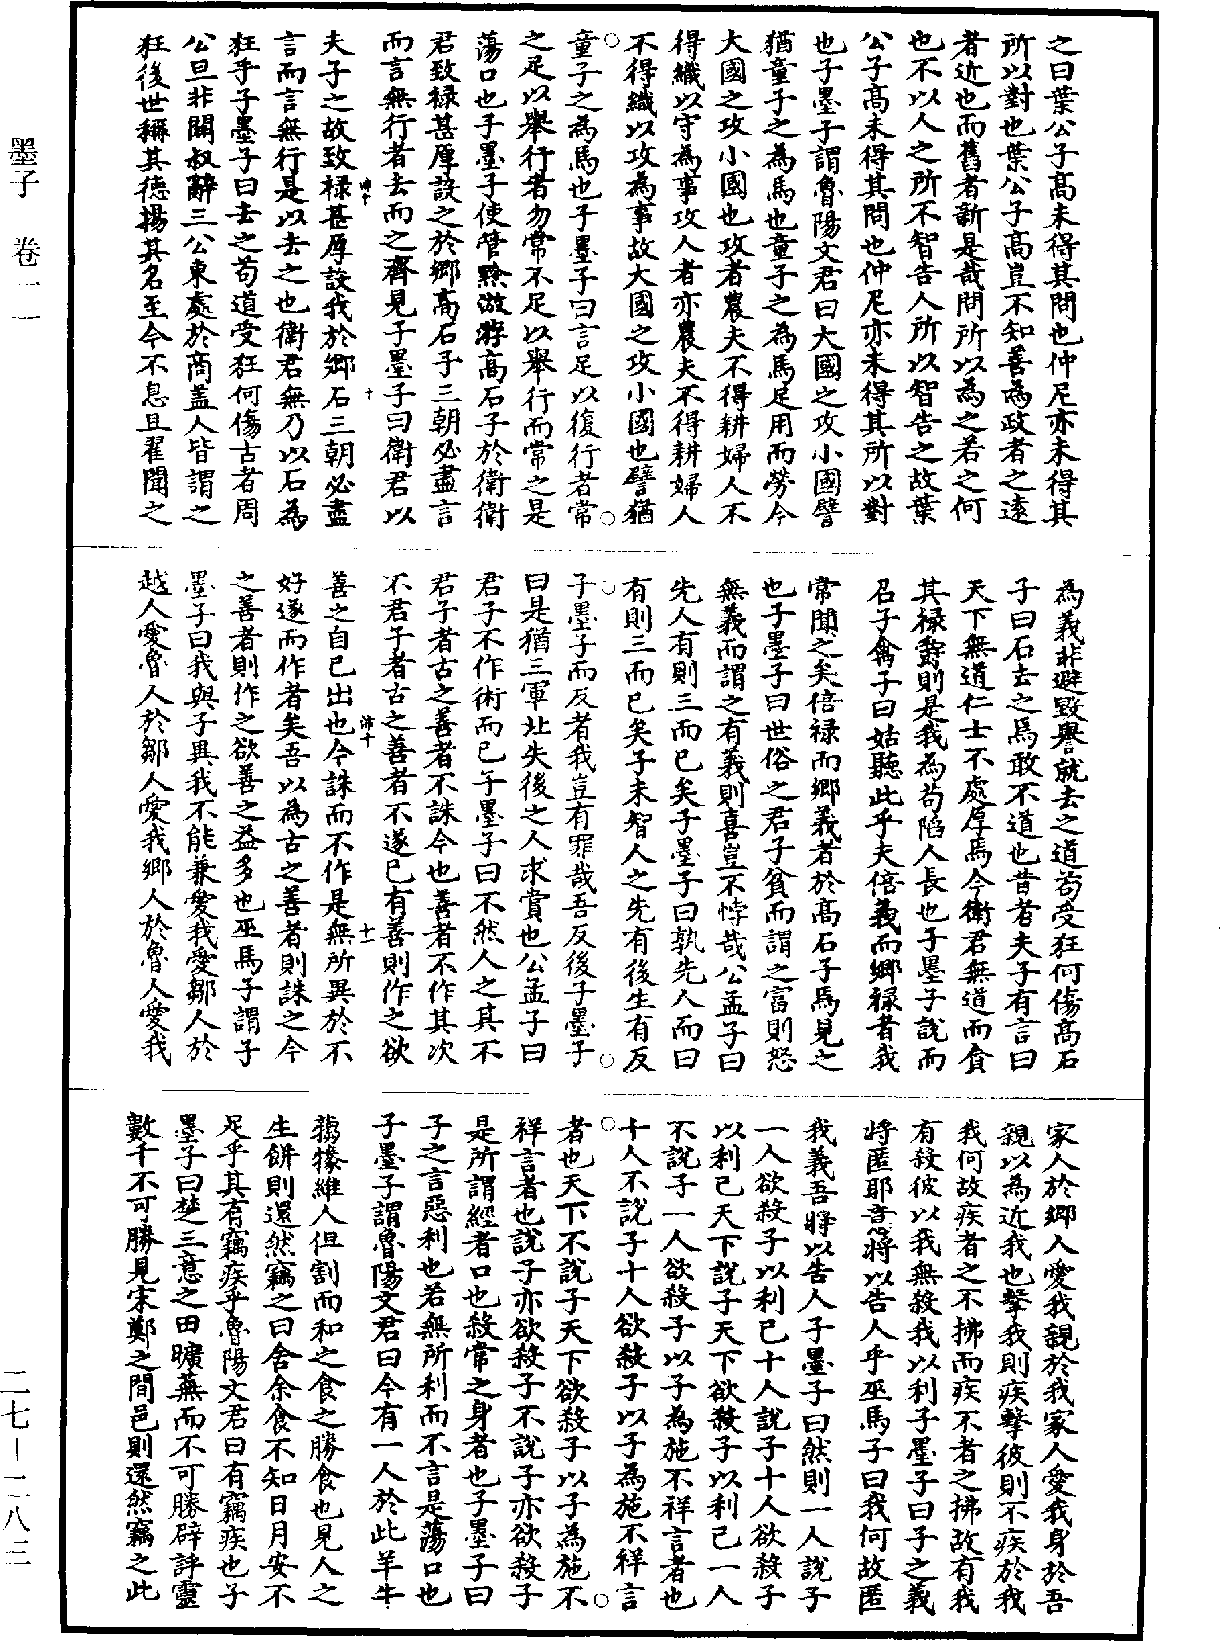 之曰葉公子高未得其問也仲尼亦未得其
所以對也葉公子高豈不知善為政者之遠
者近也而舊者新是哉問所以為之若之何
也不以人之所不智告人所以智告之故葉
公子高未得其問也仲尼亦未得其所以對
也子墨子謂魯陽文君曰大國之攻小國譬
猶童子之為馬也童子之為馬足用而勞今
大國之攻小國也攻者農夫不得耕婦人不
得織以守為事攻人者亦農夫不得耕婦人
不得織以攻為事故大國之攻小國也譬猶
童子之為馬也子墨子曰言足以復行者常
之足以舉行者勿常不足以舉行而常之是
蕩口也子墨子使管黔㴾游高石子於衛衛
君致祿甚厚設之於鄉高石子三朝必盡言
而言無行者去而之齊見子墨子曰衛君以
夫子之故致祿甚厚設我於鄉石三朝必盡
言而言無行是以去之也衛君無乃以石為
狂乎子墨子曰去之苟道受狂何傷古者周
公旦非關叔辭三公東處於商蓋人皆謂之
狂後世稱其德揚其名至今不息且翟聞之
為義非避毀譽就去之道苟受狂何傷高石
子曰石去之焉敢不道也昔者夫子有言曰
天下無道仁士不處厚焉今衛君無道而貪
其祿爵則是我為苟陷人長也子墨子說而
召子禽子曰姑聽此乎夫倍義而鄉祿者我
常聞之矣倍祿而鄉義者於高石子焉見之
也子墨子曰世俗之君子貧而謂之富則怒
無義而謂之有義則喜豈不悖哉公孟子曰
先人有則三而已矣子墨子曰孰先人而曰
有則三而已矣子未智人之先有後生有反
子墨子而反者我豈有罪哉吾反後子墨子
曰是猶三軍北失後之人求賞也公孟子曰
君子不作術而已子墨子曰不然人之其不
君子者古之善者不誅今也善者不作其次
不君子者古之善者不遂已有善則作之欲
善之自已出也今誅而不作是無所異於不
好遂而作者矣吾以為古之善者則誅之今
之善者則作之欲善之益多也巫馬子謂子
墨子曰我與子異我不能兼愛我愛鄒人於
越人愛魯人於鄒人愛我鄉人於魯人愛我
家人於鄉人愛我親於我家人愛我身於吾
親以為近我也擊我則疾擊彼則不疾於我
我何故疾者之不拂而疾不者之拂故有我
有殺彼以我無殺我以利子墨子曰子之義
將匿耶意將以告人乎巫馬子曰我何故匿
我義吾將以告人子墨子曰然則一人說子
一人欲殺子以利己十人說子十人欲殺子
以利己天下說子天下欲殺子以利己一人
不說子一人欲殺子以子為施不祥言者也
十人不說子十人欲殺子以子為施不祥言
者也天下不說子天下欲殺子以子為施不
祥言者也說子亦欲殺子不說子亦欲殺子
是所謂經者口也殺常之身者也子墨子曰
子之言惡利也若無所利而不言是蕩口也
子墨子謂魯陽文君曰今有一人於此羊牛
犓㹖維人但割而和之食之勝食也見人之
生餅則還然竊之曰舍余食不知日月安不
足乎其有竊疾乎魯陽文君曰有竊疾也子
墨子曰楚三意之田曠蕪而不可勝辟評靈
數千不可勝見宋鄭之間邑則還然竊之此
墨子 卷一一
二七-二八三